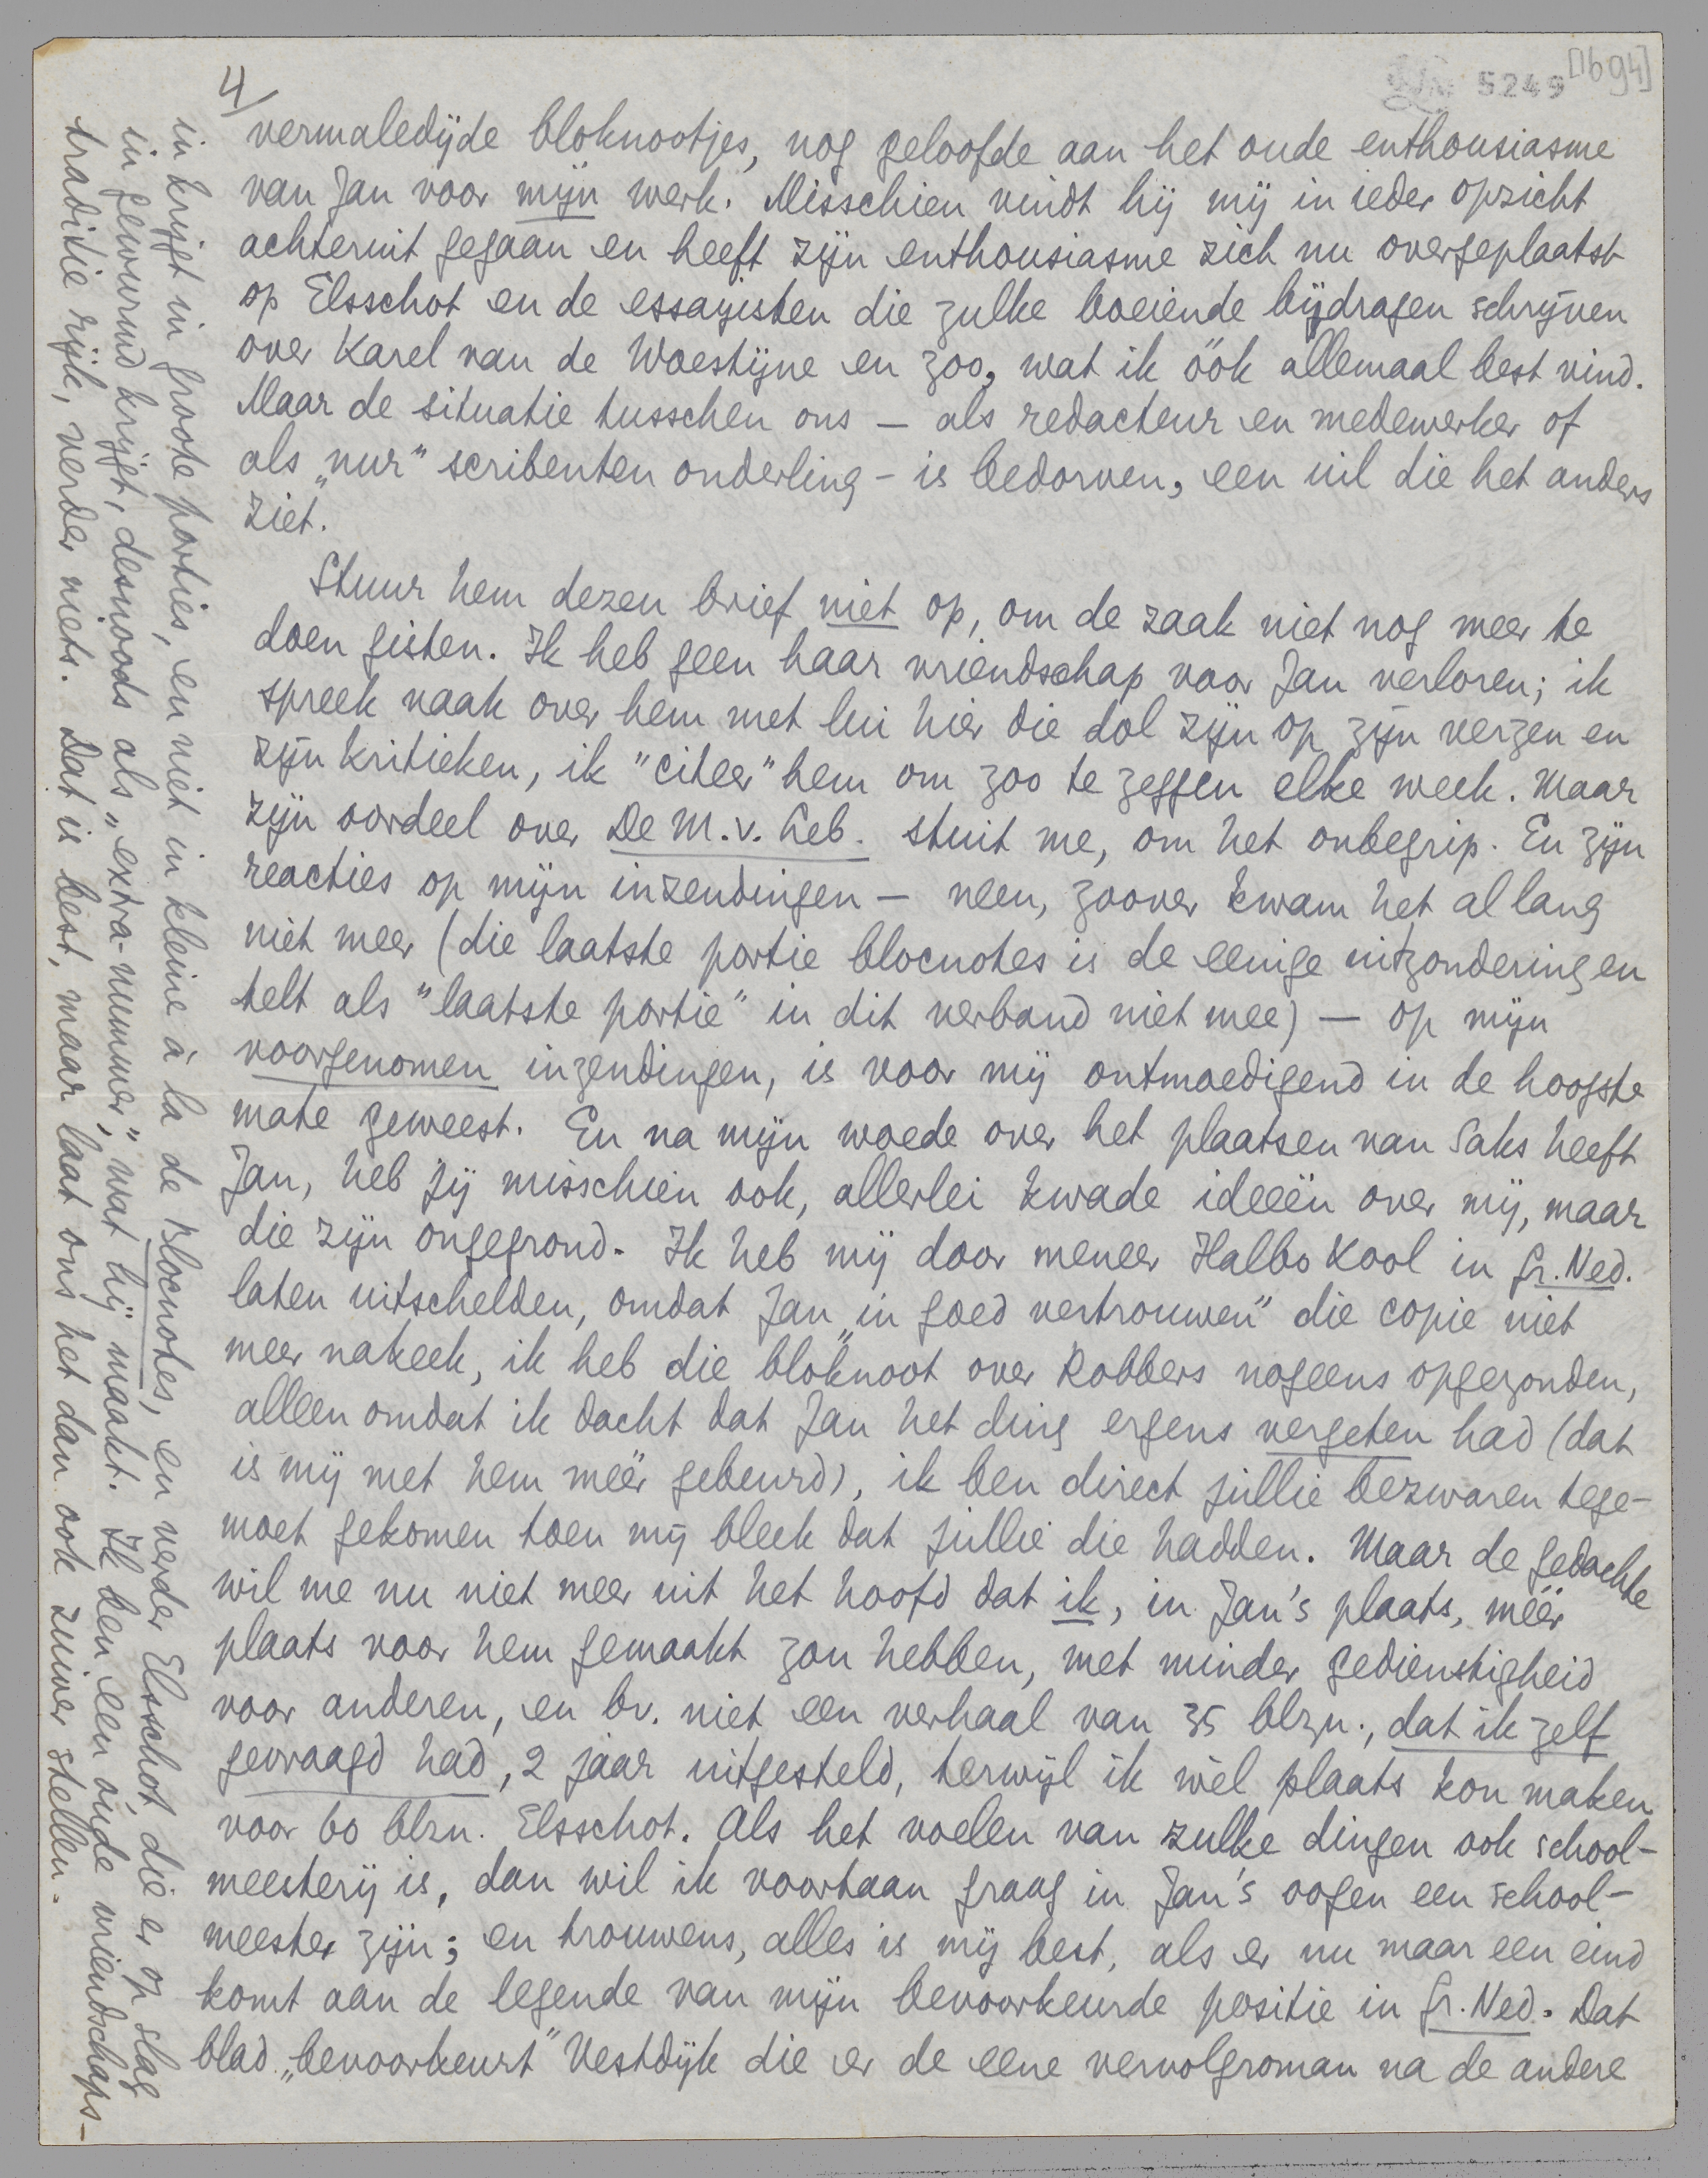 4/
5249
[1694]
vermaledijde bloknootjes, nog geloofde aan het oude enthousiasme
van Jan voor mijn werk. Misschien vindt hij mij in ieder opzicht
achteruit gegaan en heeft zijn enthousiasme zich nu overgeplaatst
op Elsschot en de essayisten die zulke boeiende bijdragen schrijven
over Karel van de Woestijne en zoo, wat ik óók allemaal best vind.
Maar de situatie tusschen ons — als redacteur en medewerker of
als „nur” scribenten onderling - is bedorven, een uil die het anders
ziet.
Stuur hem dezen brief niet op, om de zaak niet nog meer te
doen gisten. Ik heb geen haar vriendschap voor Jan verloren; ik
spreek vaak over hem met lui hier die dol zijn op zijn verzen en
zijn kritieken, ik "citeer" hem om zoo te zeggen elke week. Maar
zijn oordeel over De M. v. Leb. stuit me, om het onbegrip. En zijn
reacties op mijn inzendingen — neen, zoover kwam het al lang
niet meer (die laatste portie blocnotes is de eenige uitzondering en
telt als "laatste portie" in dit verband niet mee) — op mijn
voorgenomen inzendingen, is voor mij ontmoedigend in de hoogste
mate geweest. En na mijn woede over het plaatsen van Saks heeft
Jan, heb jij misschien ook, allerlei kwade ideeën over mij, maar
die zijn ongegrond. Ik heb mij door meneer Halbo Kool in Gr. Ned.
laten uitschelden, omdat Jan „in goed vertrouwen" die copie niet
meer nakeek, ik heb die bloknoot over Robbers nogeens opgezonden,
alleen omdat ik dacht dat Jan het ding ergens vergeten had (dat
is mij met hem méér gebeurd), ik ben direct jullie bezwaren tege-
moet gekomen toen mij bleek dat jullie die hadden. Maar de gedachte
wil me nu niet meer uit het hoofd dat ik, in Jan's plaats, méér
plaats voor hem gemaakt zou hebben, met minder gedienstigheid
voor anderen, en bv. niet een verhaal van 35 blzn., dat ik zelf
gevraagd had, 2 jaar uitgesteld, terwijl ik wèl plaats kon maken
voor 60 blzn. Elsschot. Als het voelen van zulke dingen ook school-
meesterij is, dan wil ik voortaan graag in Jan's oogen een school-
meester zijn; en trouwens, alles is mij best, als er nu maar een eind
komt aan de legende van mijn bevoorkeurde positie in Gr. Ned. Dat
blad „bevoorkeurt" Vestdijk die er de eene vervolgroman na de andere
in krijgt in groote porties, en niet in kleine à la de Blocnotes, en verder Elsschot die er op slag
in gewurmd krijgt, desnoods als „extra-nummer," wat hij maakt. Ik ben een oude vriendschaps-
traditie rijk, verder niets. Dat is best, maar laat ons het dan ook zuiver stellen.